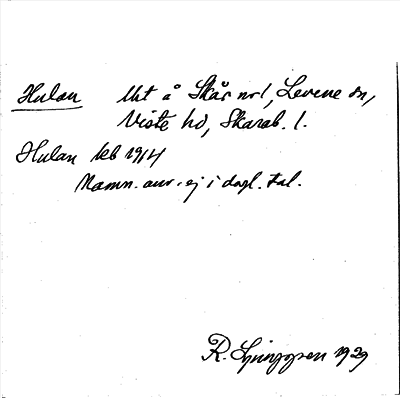 Hulan Uht å Skår nr 1, Levene sn,
Viste hd, Skarab. l.
Hulan kb 1914
Namn. anv. ej i dagl. tal.
R. Ljunggren 1929